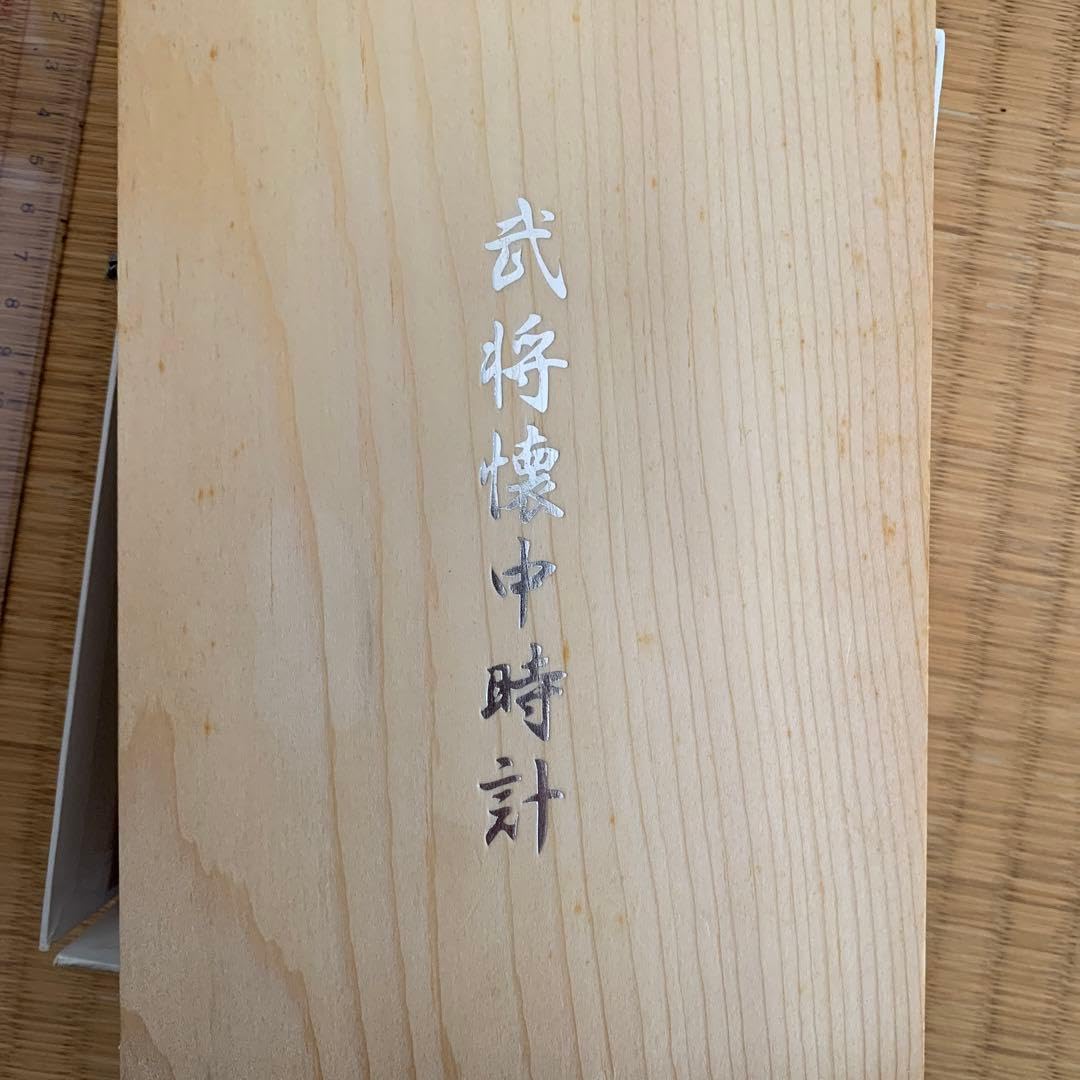 武将懐中時計
2
3
4
5
6
7
8
9